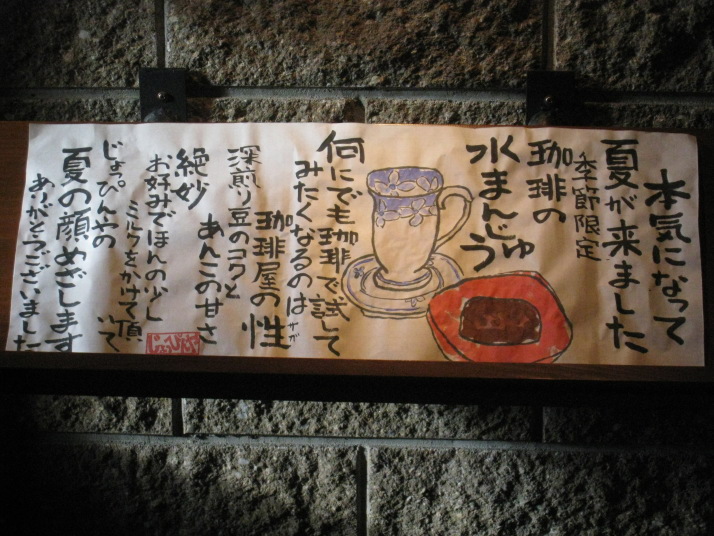 本気になって
夏が来ました
季節限定
珈琲の
水まんじゅう
何にでも珈琲で試して
みたくなるのは
珈琲屋の性
サガ
深煎り豆のコクと
あんこの甘さ
絶妙
お好みでほんの少し
ミルクをかけて頂いて
じょっぴんやの
夏の顔めざします
ありがとうございました
じょっぴんや